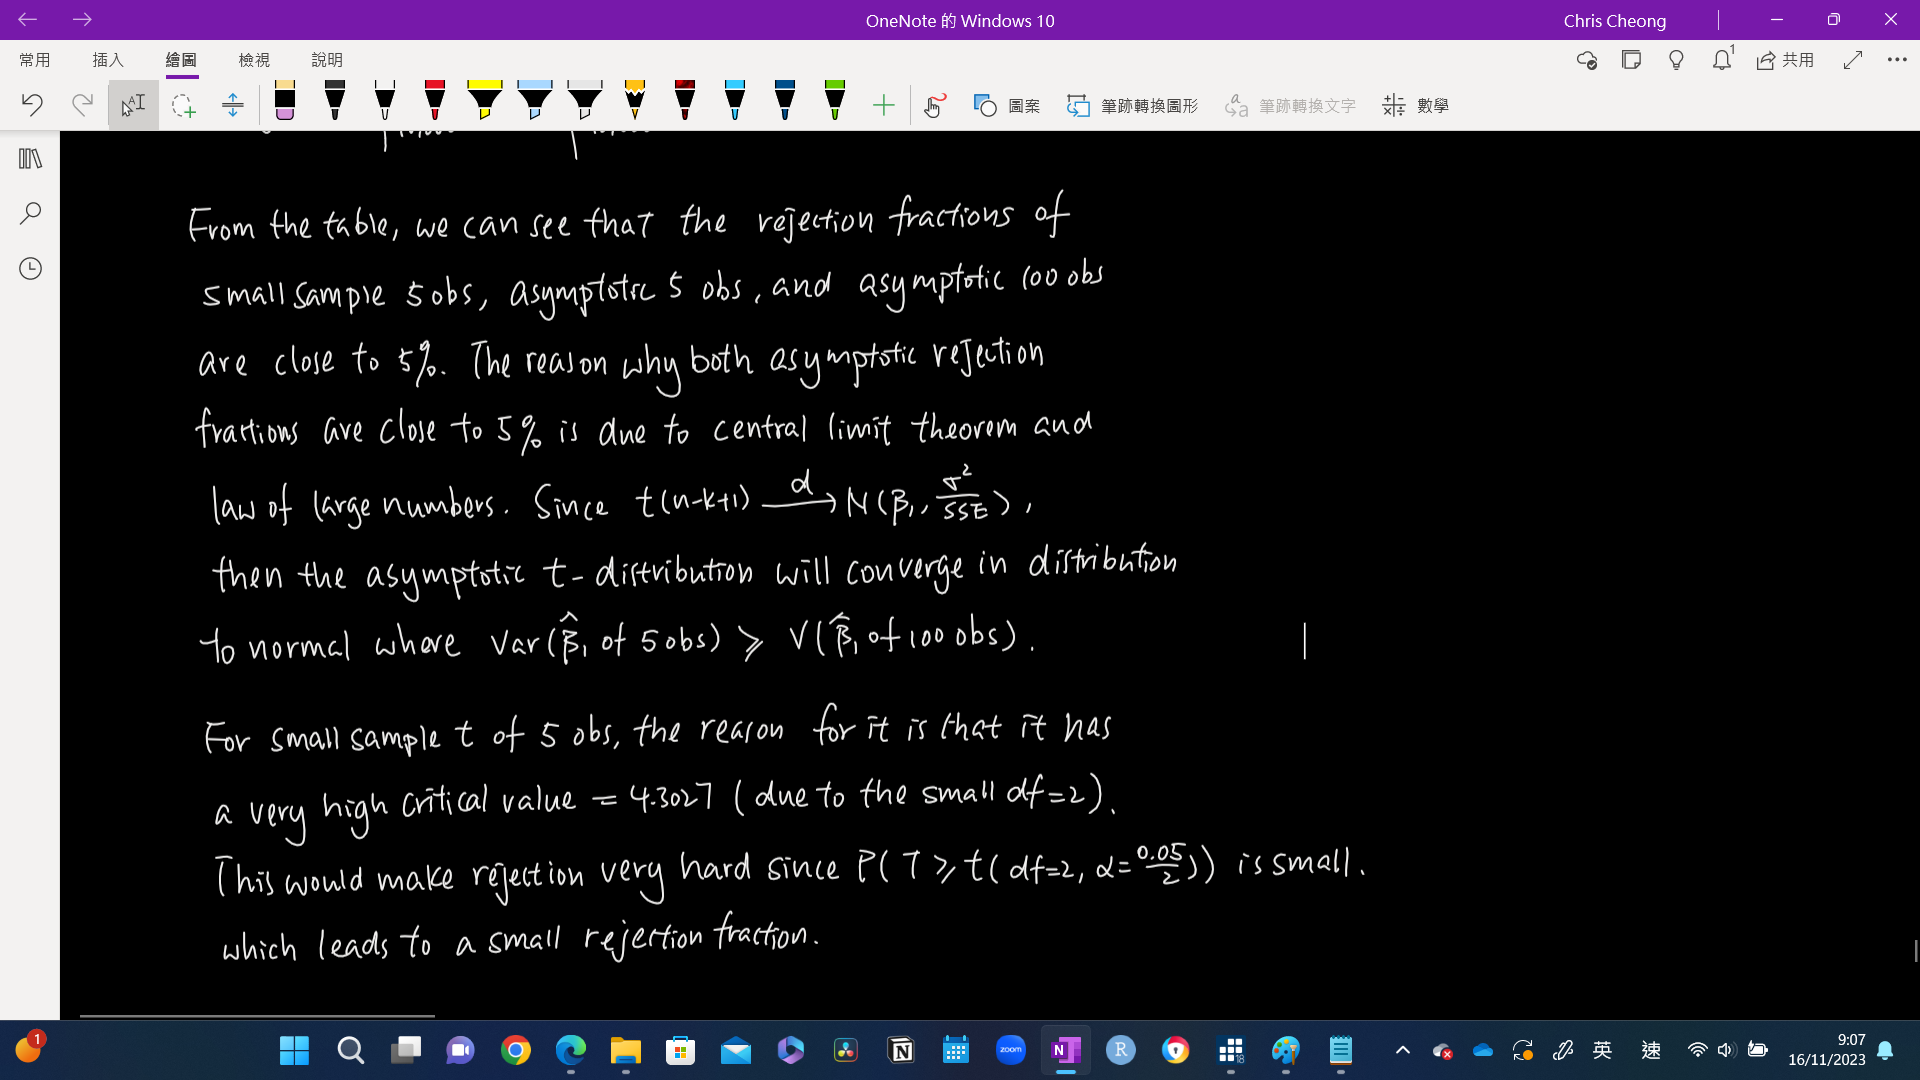 OneNote 的 Windows 10
Chris Cheong
常用 插入 繪圖 檢視 說明
1 共用
圖案 筆跡轉換圖形 筆跡轉換文字 數學
From the table, we can see that the rejection fractions of
small sample 5 obs, asymptotic 5 obs, and asymptotic 100 obs
are close to 5%. The reason why both asymptotic rejection
fractions are close to 5% is due to central limit theorem and
law of large numbers. Since t(n-k+1) —d→ N(β₁, σ²/SSE),
then the asymptotic t-distribution will converge in distribution
to normal where Var(β̂₁ of 5 obs) ≥ V(β̂₁ of 100 obs).
For small sample t of 5 obs, the reason for it is that it has
a very high critical value = 4.3027 (due to the small df=2).
This would make rejection very hard since P(T ≥ t(df=2, α=0.05/2)) is small.
which leads to a small rejection fraction.
1
zoom
N
R
18
英 速
9:07
16/11/2023